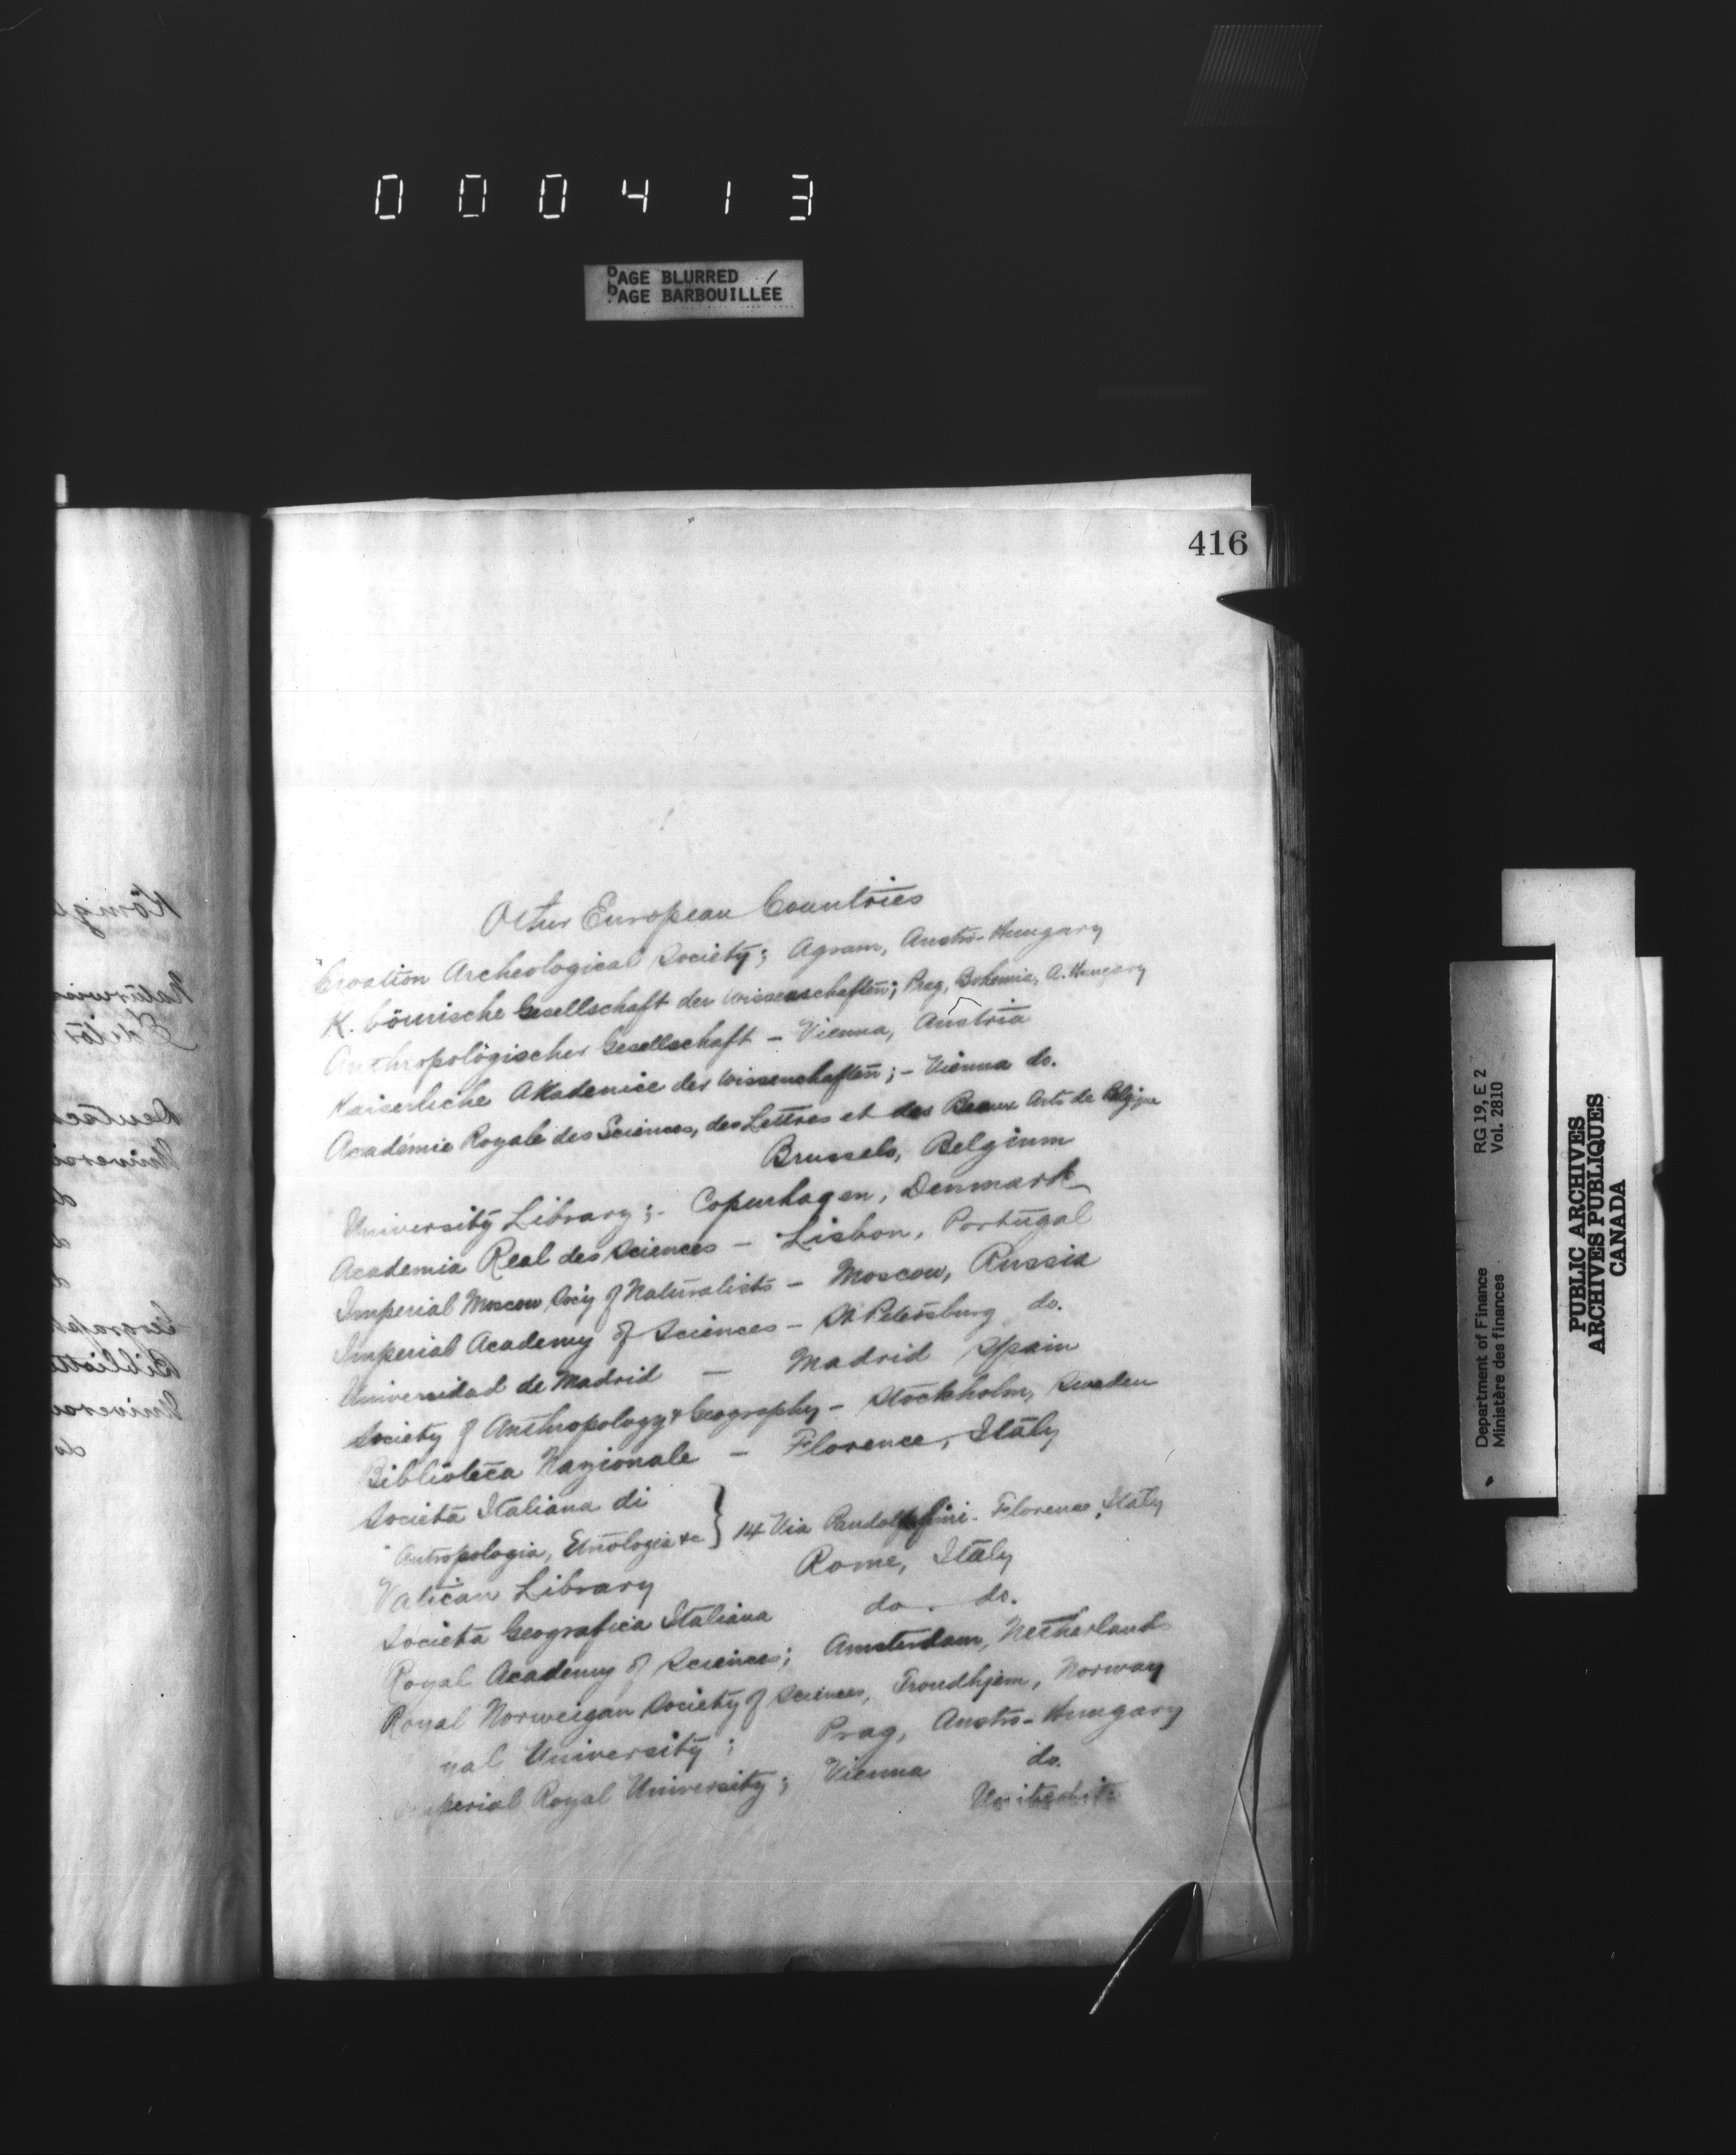 000413
PAGE BLURRED
PAGE BARBOUILLÉE
416
Other European Countries
Croation Archeological Society; Agram, Austro-Hungary
K. Bömische Gesellschaft der Wissenschaften; Prag, Bohemia, A. Hungary
Anthropologischer Gesellschaft - Vienna, Austria
Kaiserliche Akademice der Wissenschaften; - Vienna do.
Académie Royale des Sciences, des Lettres et des Beaux Arts de Belgique
Brussels, Belgium
University Library; - Copenhagen, Denmark
Academia Real des Sciences - Lisbon, Portugal
Imperial Moscow Socy of Naturalists - Moscow, Russia
Imperial Academy of Sciences - St Petersburg do.
Universidad de Madrid - Madrid Spain
Society of Anthropology & Geography - Stockholm, Sweden
Biblioteca Nazionale - Florence, Italy
Societa Italiana di
Antropologia, Etnologia &c } 14 Via Pandolfini - Florence, Italy
Vatican Library Rome, Italy
Societa Geografica Italiana do. do.
Royal Academy of Sciences; Amsterdam, Netherlands
Royal Norweigan Society of Sciences, Trondhjem, Norway
nal University; Prag, Austro-Hungary
perial Royal University; Vienna do.
RG 19, E 2
Vol. 2810
Department of Finance
Ministère des finances
PUBLIC ARCHIVES
ARCHIVES PUBLIQUES
CANADA